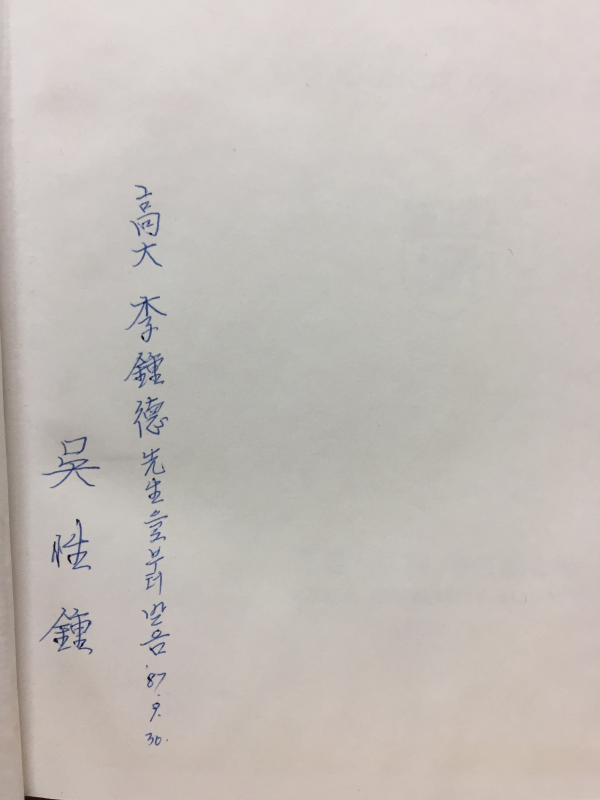 高大 李鍾德 先生으로부터 받음 '87. 9. 30.
吳性鍾